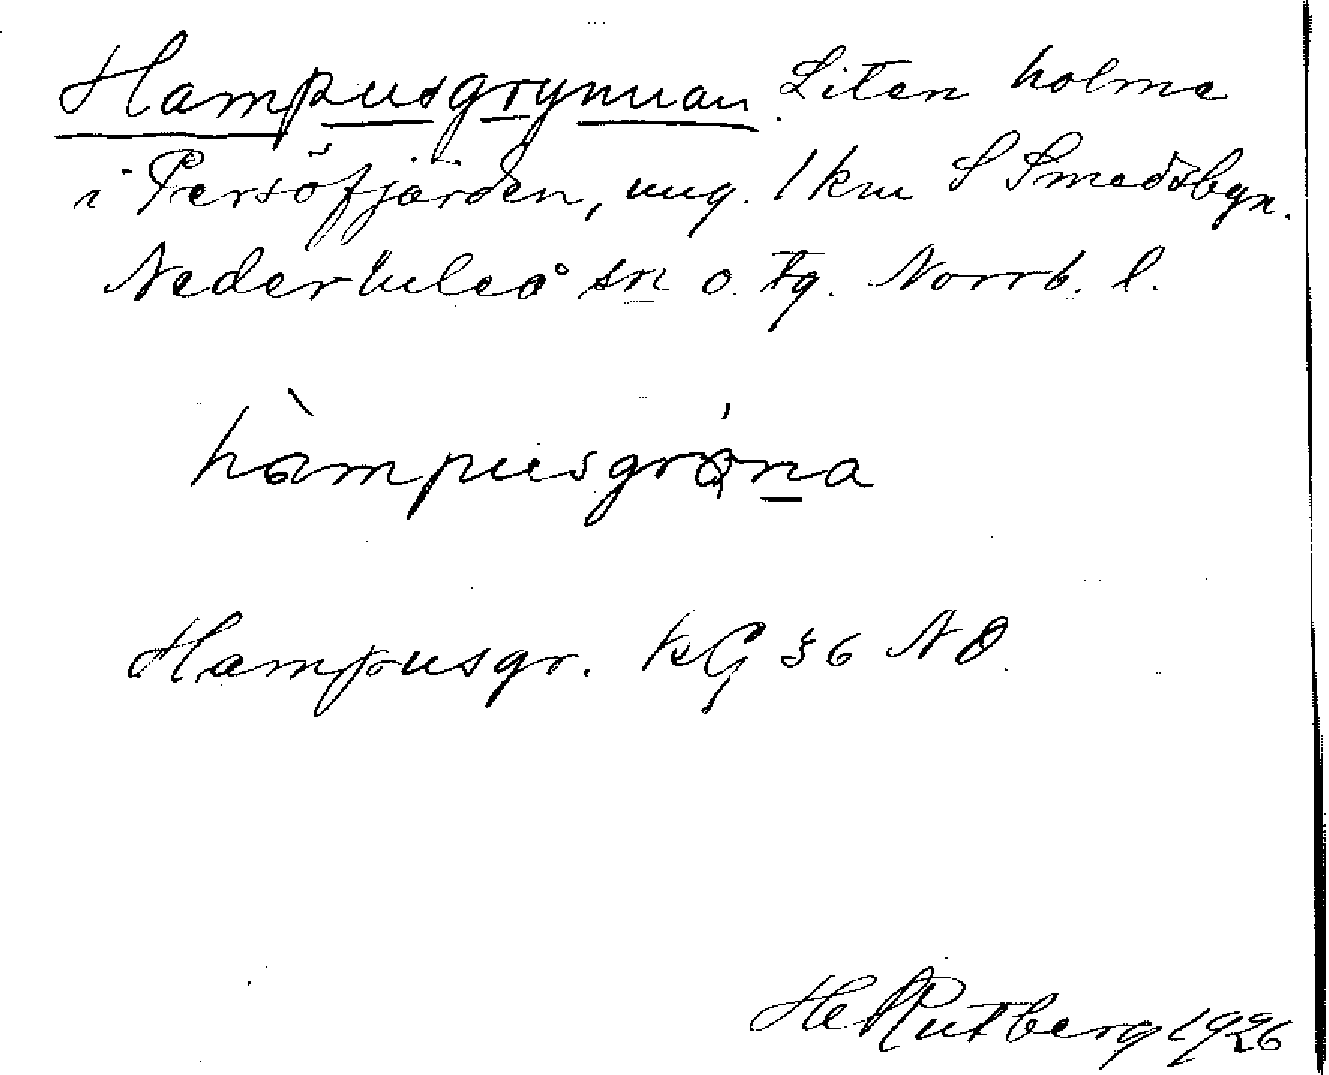 Hampusgrynnan. Liten holme
i Persöfjärden, ung. 1 km S Smedsbyn.
Nederluleå sn o. tg. Norrb. l.
hàmpusgrǿna
Hampusgr. KG 36 NO.
He Rutberg 1926